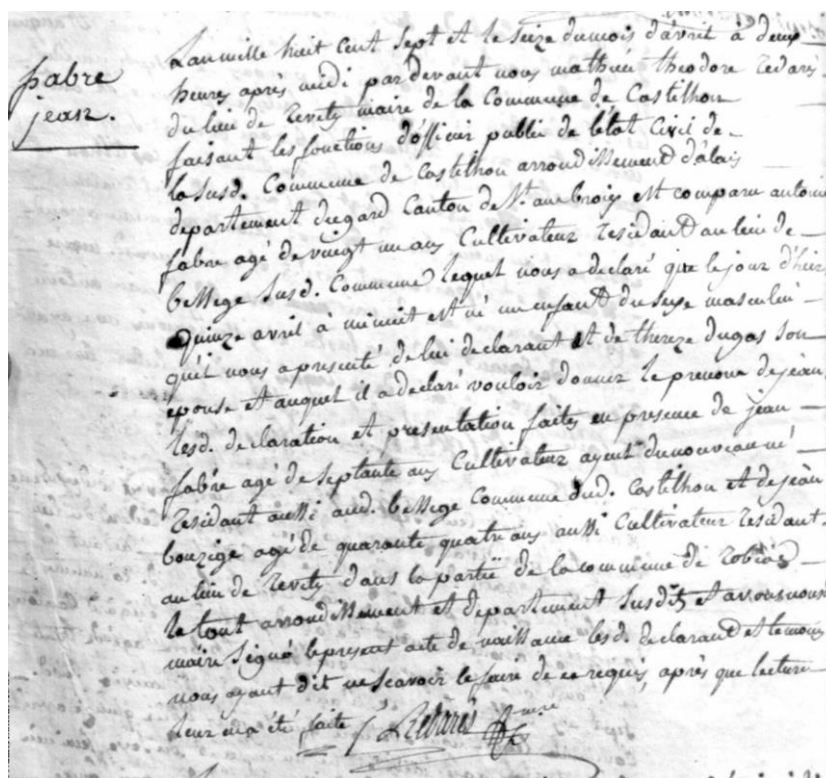 fabre
jean.
L'an mille huit cent sept et le seize du mois d'avril à deux
heures après midi par devant nous mathieu theodore Redarès
du lieu de Revety maire de la Commune de Castilhon
faisant les fonctions d'officier public de l'état Civil de
la susd. Commune de Castilhon arrondissement d'alais
departement du gard Canton de St. ambroix est comparu antoine
fabre agé de vingt un ans Cultivateur residant au lieu de
bessege susd. Commune lequel nous a declaré que le jour d'hier
quinze avril à minuit est né un enfant du sexe masculin
qu'il nous a presenté de lui declarant et de thereze dugas son
epouse et auquel il a declaré vouloir donner le prenome de jean
lesd. declaration et presentation faites en presence de jean
fabre agé de septante ans Cultivateur ayeut du nouveau né
residant aussi aud. bessege commune dud. Castilhon et de jean
bouzige agé de quarante quatre ans aussi Cultivateur residant
au lieu de Revety dans la partië de la commune de Robiac
le tout arrondissement et departement susdits et avons nous
maire signé le present acte de naissance lesd. declarant et temoins
nous ayant dit ne scavoir le faire de ce requis, après que lecture
leur en a été faite Redarès maire